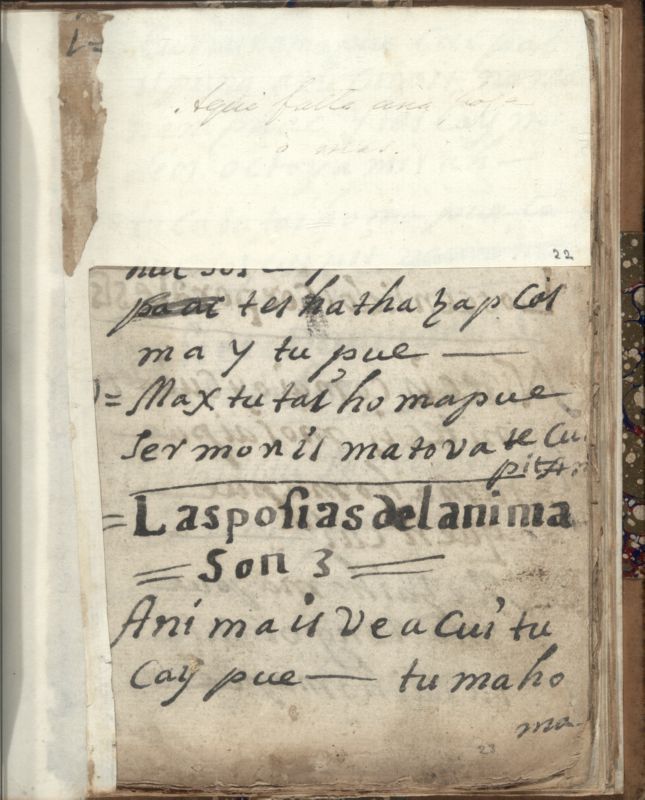 i=
Aqui falta una hoja
o mas.
22
tes hatha zap Cos
ma y tu pue —
= Max tu tas ho mapue
Sermonis matova te Cu
pitan
= Las posias del anima
= Son 3 =
Animais Ve a Cui tu
Cay pue — tu maho
ma
23